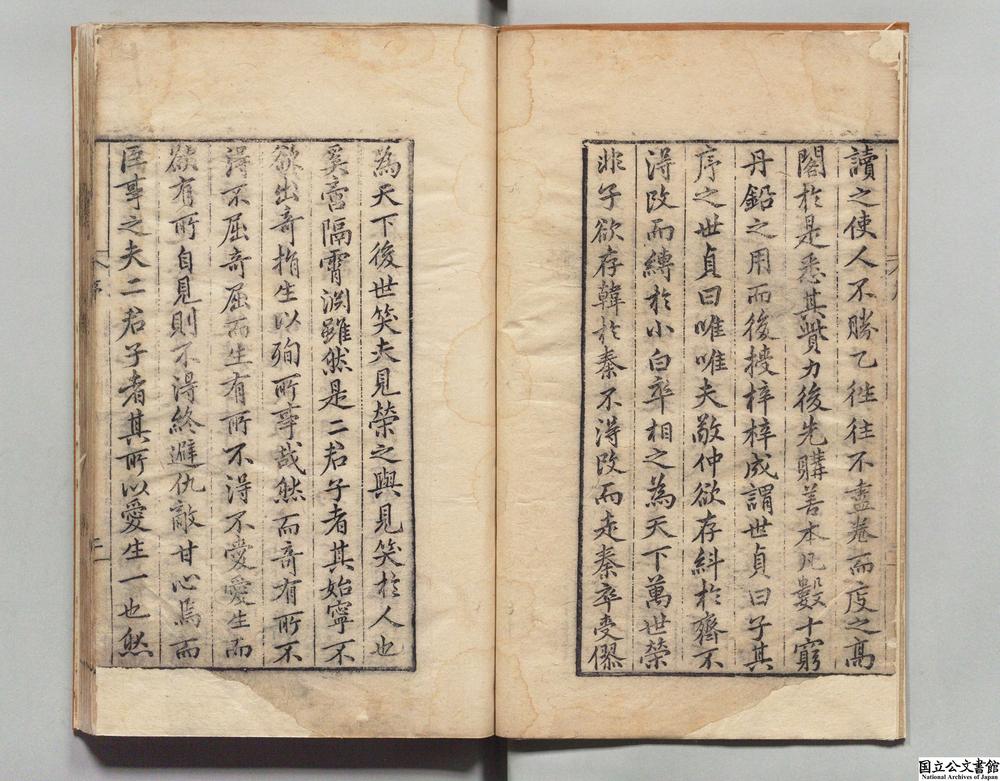 讀之使人不勝乙徃往不盡卷而庋之高
閣於是悉其貲力後先購善本凡數十窮
丹鉛之用而後授梓梓成謂世貞曰子其
序之世貞曰唯唯夫敬仲欲存糾於齊不
得改而縛於小白卒相之為天下萬世榮
非子欲存韓於秦不得改而走秦卒受僇
為天下後世笑夫見榮之與見笑於人也
奚啻隔霄淵雖然是二君子者其始寧不
欲出奇捐生以殉所事哉然而奇有所不
得不屈奇屈而生有所不得不愛愛生而
欲有所自見則不得終避仇敵甘心焉而
臣事之夫二君子者其所以愛生一也然
序
国立公文書館
National Archives of Japan